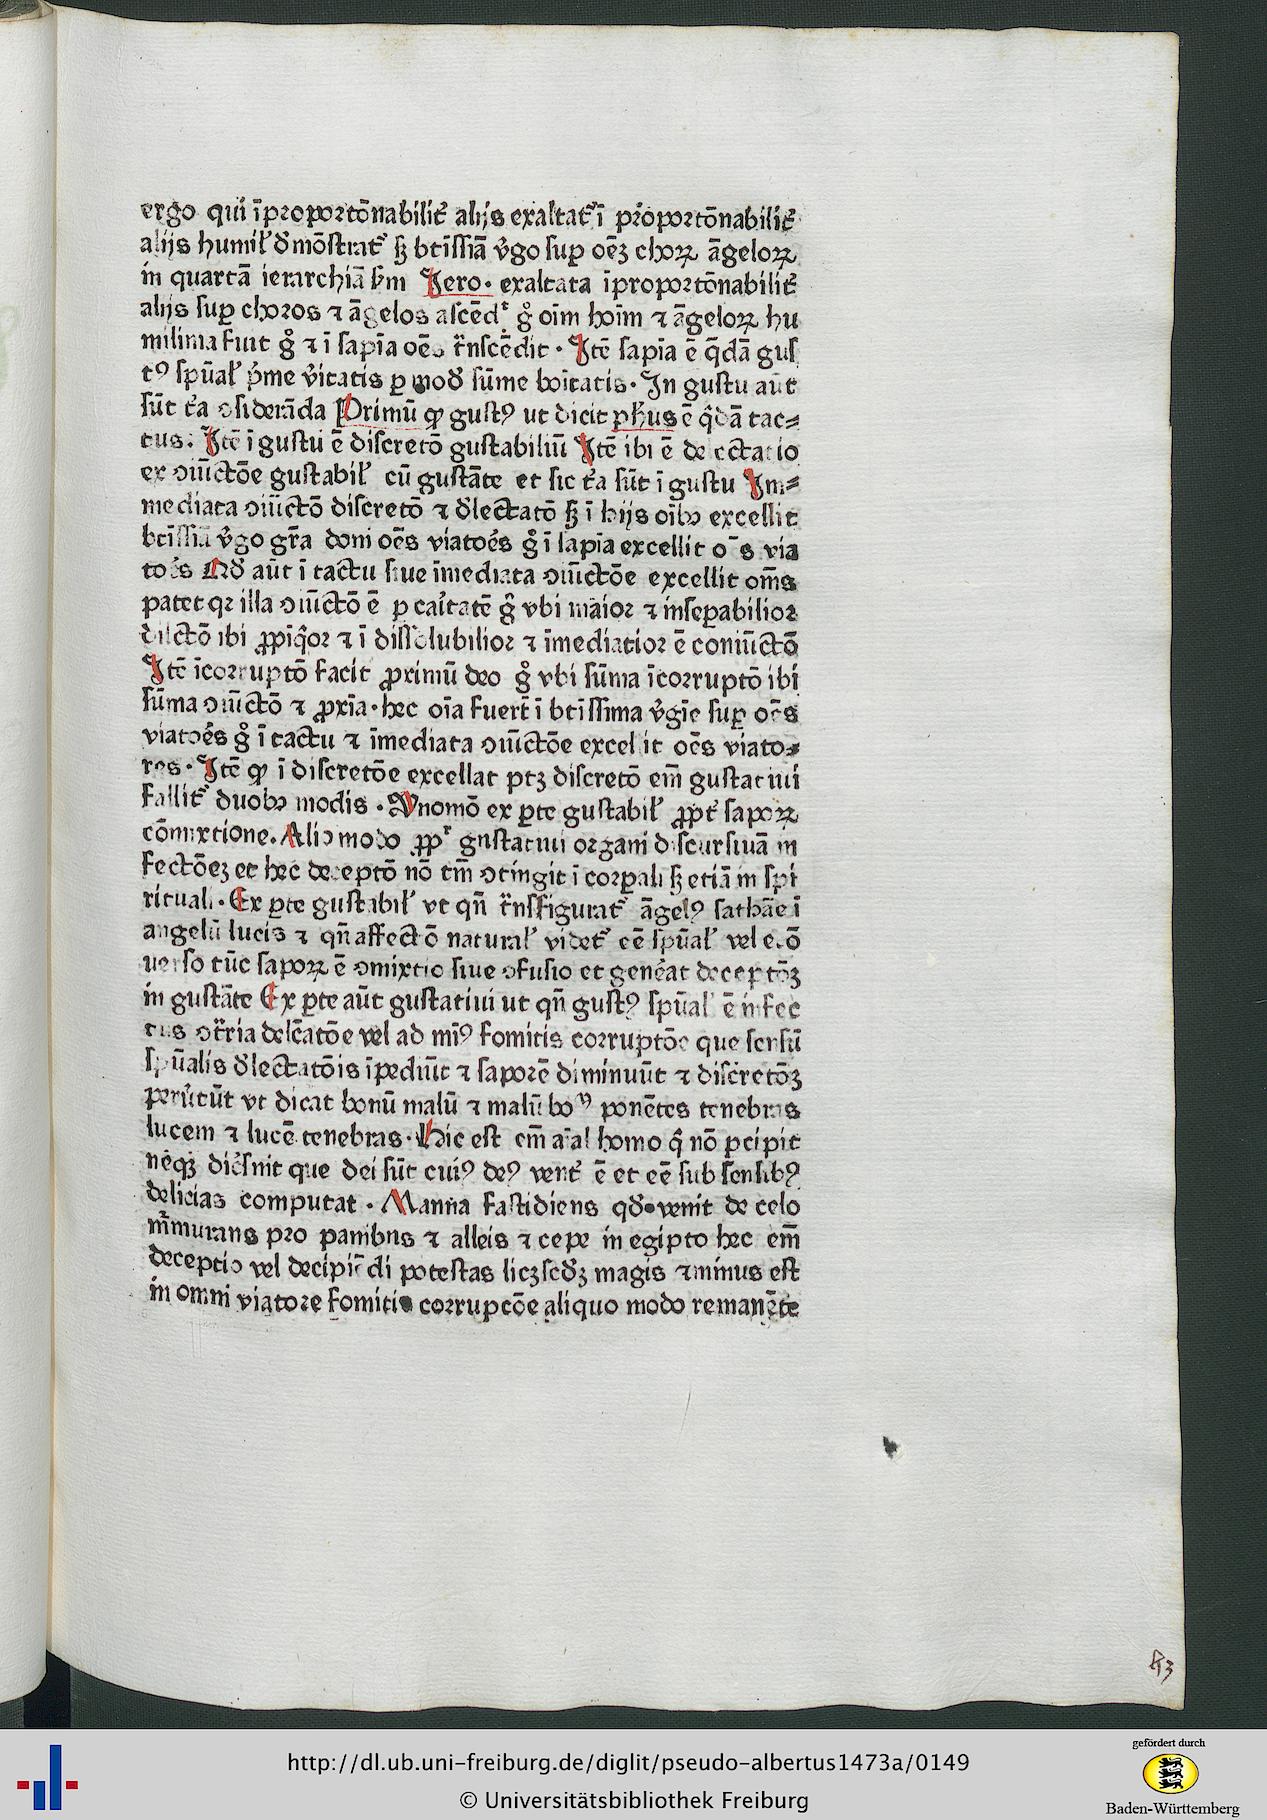 ergo qui īproportōnabilit᷑ alijs exaltat᷑ ī proportōnabilit᷑
alijs humil̛ dmōstrat᷑ sꝫ btīssiā v̛go suꝑ oēꝫ choꝝ āgeloꝝ
in quartā ierarchiā ẜm Jero. exaltata īproportōnabilit᷑
alijs suꝑ choros ⁊ āgelos ascēd᷑ gͦ oīm hoīm ⁊ āgeloꝝ hu
milima fuit gͦ ⁊ ī sapīa oēs tͣnscēdit . Jtē sapīa ē q̄dā gus
tꝰ spūal̛ p̛me v̛itatis ꝑ mod sūme boītatis. Jn gustu aūt
sūt t̛ia ↄsiderāda Primū ꝙ gustꝰ ut dicit ph̄us ē q̄dā tac⸗
tus. Jtē ī gustu ē discretō gustabiliū Jtē ibi ē delectatio
ex ↄiūctōe gustabil̛ cū gustāte et sic t̛ia sūt ī gustu Jm⸗
mediata ↄiūctō discretō ⁊ dlectatō sꝫ ī hijs oībꝰ excellit
btīssīa v̛go gr̄a doni oēs viatoēs gͦ ī sapīa excellit oēs via
toēs Qd aūt ī tactu siue īmediata ↄiūctōe excellit om̄s
patet qꝛ illa ↄiūctō ē ꝑ caītatē gͦ vbi maior ⁊ inseꝑabilior
dilctō ibi ꝓpiq̄or ⁊ ī dissolubilior ⁊ īmediatior ē coniūctō
Jtē īcorruptō facit ꝓximū deo gͦ vbi sūma īcorruptō ibi
sūma ↄiūctō ⁊ ꝓxīa . hec oīa fuerūt ī btīssima v̛gīe suꝑ oēs
viatoēs gͦ ī tactu ⁊ īmediata ↄiūctōe excellit oēs viato⸗
res . Jtē ꝙ ī discretōe excellat ptꝫ discretō em̄ gustatiui
fallit᷑ duobꝰ modis . Vnomō ex ꝑte gustabil̛ ꝓpt᷑ sapoꝝ
cōmixtione. Alio modo ꝓp᷑ gustatiui organi discursiuā in
fectōeꝫ et hec deceptō nō tm̄ ↄtingit ī corꝑali sꝫ etiā in spi
rituali . Ex ꝑte gustabil̛ vt qn̄ tͣnsfigurat᷑ āgelꝰ sathāe ī
angelū lucis ⁊ qn̄ affectō natural̛ videt᷑ eē spūal̛ vel e ↄ̄
uerso tūc sapoꝝ ē ↄmixtio siue ↄfusio et genēat deceptōꝫ
in gustāte Ex ꝑte aūt gustatiui ut qn̄ gustꝰ spūal̛ ē infec
tus ↄt̄ria delcātōe vel ad miꝰ fomitis corruptōe que sensū
spūalis dlectatōis īpediūt ⁊ saporē diminuūt ⁊ discretōꝫ
perūtūt vt dicat bonū malū ⁊ malū boᷠ ponētes tenebras
lucem ⁊ lucē tenebras . Hic est em̄ aīal homo q̄ nō ꝑcipit
neqꝫ dicēnit que dei sūt cuiꝰ deꝰ vent᷑ ē et eē sub sensibꝰ
delicias computat . Manna fastidiens qd venit de celo
m̄murans pro panibns ⁊ alleis ⁊ cepe in egipto hec em̄
deceptio vel decipiēdi potestas licꝫ scdꝫ magis ⁊ minus est
in omni viatore fomitis corrupcōe aliquo modo remanēte
83
http://dl.ub.uni-freiburg.de/diglit/pseudo-albertus1473a/0149
© Universitätsbibliothek Freiburg
gefördert durch
Baden-Württemberg